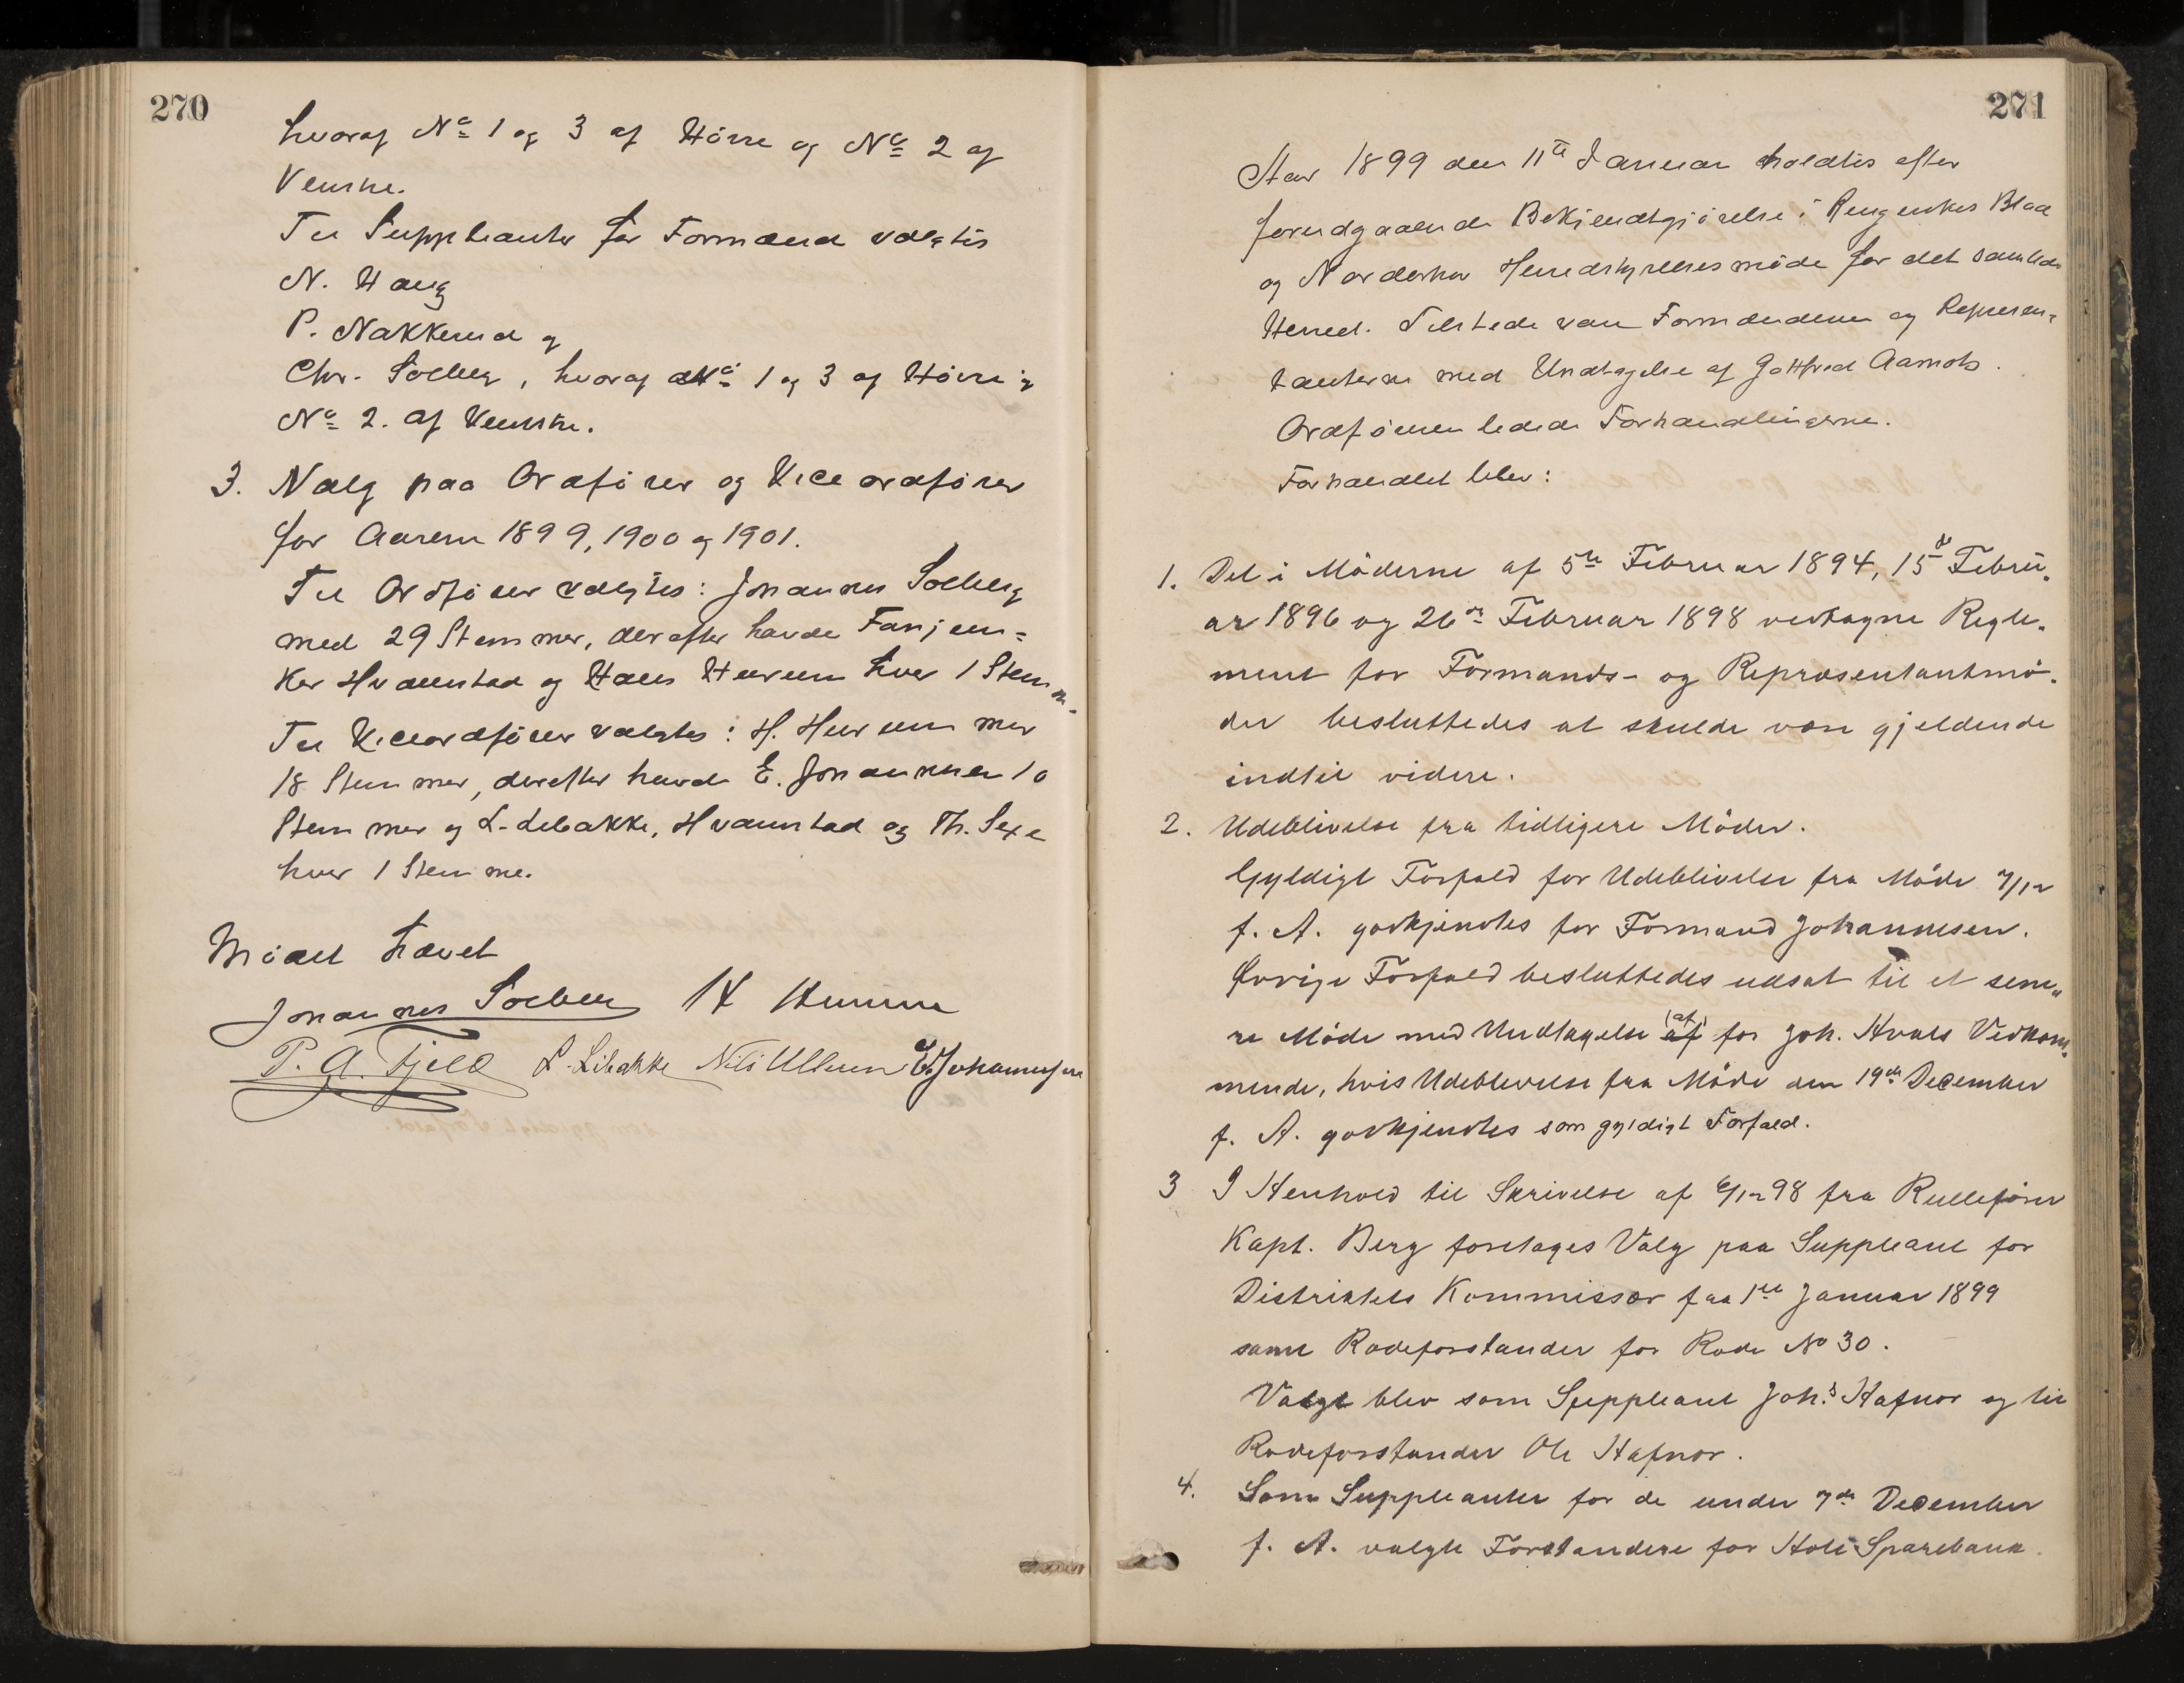 270
hvoraf No 1 og 3 af Høire og No 2 af
Venstre.
Til Suppleanter for Formænd valgtes
N. Haug
P. Nakkerud og
Chr. Solberg, hvoraf No 1 og 3 af Høire og
No 2. af Venstre.
3. Valg paa Ordfører og Viceordfører
for Aarene 1899, 1900 og 1901.
Til Ordfører valgtes: Johannes Solberg
med 29 Stemmer, derefter havde Fanjun=
ker Hvamstad og Hans Hurum hver 1 Stem
Til Viceordfører valgtes: H. Hurum med
18 Stemmer, derefter havde E. Johannesen 10
Stemmer og L. Libakke, Hvamstad og Th. Sexe
hver 1 Stemme.
Mødet hævet
Johannes Solberg H Hurum
P. A. Fjeld L. Libakke Nils Ullern E. Johannesen
271
Aar 1899 den 11te Januar holdtes efter
forudgaaende Bekjendtgjørelse i Ringerikes Blad
og Norderhov Herredstyrelsesmøde for det samlede
Herred. Tilstede var Formændene og Repræsen-
tanterne med Undtagelse af Gottfred Aamodt.
Ordføreren ledede Forhandlingerne.
Forhandlet blev:
1. Det i Møderne af 5te Februar 1894, 15de Febru-
ar 1896 og 26de Februar 1898 vedtagne Regle-
ment for Formands- og Repræsentantmø-
der besluttedes at skulde være gjeldende
indtil videre.
2. Udeblivelse fra tidligere Møder.
Gyldigt Forfald for Udeblivelse fra Møde 7/12
f. A. godkjendtes for Formand Johannesen.
Øvrige Forfald besluttedes udsat til et sene-
re Møde med Undtagelse af (af) for Joh. Hvals Vedkom-
mende, hvis Udeblivelse fra Møde den 19de December
f. A. godkjendtes som gyldigt Forfald.
3 I Henhold til Skrivelse af 6/12 98 fra Rullefører
Kapt. Berg foretages Valg paa Suppleant for
Distriktets Kommissær fra 1ste Januar 1899
samt Rodeforstander for Rode No 30.
Valgt blev som Suppleant Johs Hafnor og til
Rodeforstander Ole Hafnor.
4. Som Suppleanter for de under 7de December
f. A. valgte Forstandere for Hole Sparebank